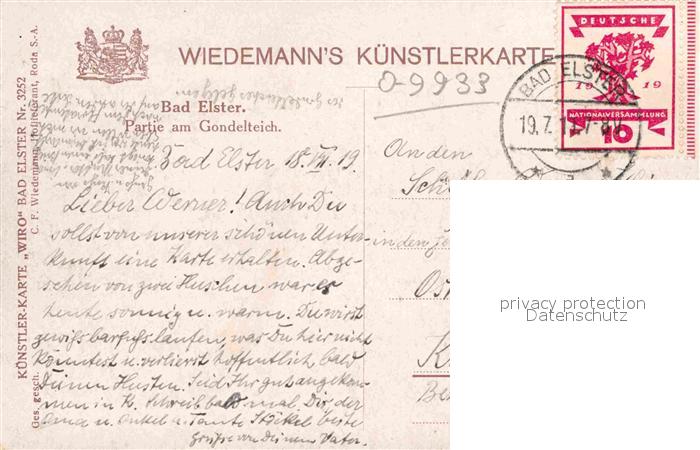 WIEDEMANN'S KÜNSTLERKARTE
O-9933
DEUTSCHE
1919
NATIONALVERSAMMLUNG
10
BAD ELSTER
19.7.19.7-8V.
Bad Elster.
Partie am Gondelteich.
KÜNSTLER-KARTE „WIRO" BAD ELSTER Nr. 3252
C. F. Wiedemann, Hoflieferant, Roda S.-A.
Ges. gesch.
Bad Elster 18.VII.19
Lieber Werner! Auch Du
sollst von unserer schönen Unter-
kunft eine Karte erhalten. Abge-
sehen von zwei Huschen war es
heute sonnig u. warm. Du wirst
gewiß barfuß laufen, was Du hier nicht
könntest u. verlierst hoffentlich bald
Deinen Husten. Seid Ihr gut angekom-
men in K. Schreib bald mal. Dir, der
Oma u. Onkel u. Tante Stöckel beste
Grüße von Deinem Vater.
An den
Sch
in den
privacy protection
Datenschutz